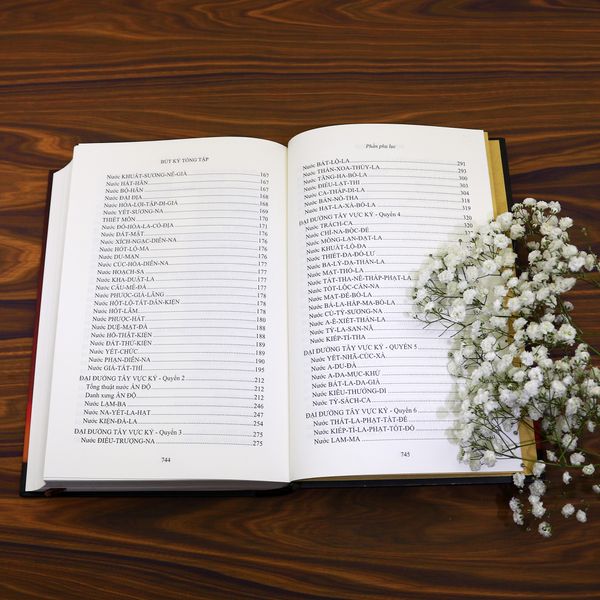 BÚT KÝ TÒNG TẬP
Nước KHUẤT-SƯƠNG-NỄ-GIÀ 167
Nước HÁT-HÃN 167
Nước BỔ-HÁN 167
Nước ĐẠI ĐỊA 168
Nước HÓA-LỢI-TẬP-DI-GIÀ 168
Nước YẾT-SƯƠNG-NA 169
THIẾT MÔN 170
Nước ĐỔ-HÓA-LA-CỐ-ĐỊA 171
Nước ĐÁT-MẬT
Nước XÍCH-NGẠC-DIỄN-NA
Nước HỐT-LỘ-MA
Nước DU-MẠN 176
Nước CÚC-HÒA-DIỄN-NA 176
Nước HOẠCH-SA 177
Nước KHA-ĐUẬT-LA 177
Nước CÂU-MÊ-ĐÀ 177
Nước PHƯỢC-GIÀ-LÃNG 178
Nước HỘT-LỘ-TẤT-DÂN-KIỆN 178
Nước HỐT-LẪM 178
Nước PHƯỢC-HÁT 180
Nước DUỆ-MẠT-ĐÀ
Nước HỒ-THẬT-KIỆN
Nước ĐÁT-THỨ-KIỆN
Nước YẾT-CHỨC
Nước PHẠN-DIỄN-NA 190
Nước GIÀ-TẤT-THÍ 195
ĐẠI ĐƯỜNG TÂY VỰC KÝ - Quyển 2 212
Tổng thuật nước ẤN ĐỘ 212
Danh xưng ẤN ĐỘ 212
Nước LAM-BA 246
Nước NA-YẾT-LA-HẠT 247
Nước KIỆN-ĐÀ-LA 254
ĐẠI ĐƯỜNG TÂY VỰC KÝ - Quyển 3 275
Nước ĐIỂU-TRƯỢNG-NA 275
744
Phần phụ lục
Nước BÁT-LỘ-LA 291
Nước THẢN-XOA-THỦY-LA 293
Nước TĂNG-HA-BỔ-LA 300
Nước ĐIỂU-LẠT-THI 303
Nước CA-THẤP-DI-LA 304
Nước BÁN-NÔ-THA 318
Nước HẠT-LA-XÀ-BỔ-LA 319
ĐẠI ĐƯỜNG TÂY VỰC KÝ - Quyển 4 320
Nước TRÁCH-CA 320
Nước CHÍ-NA-BỘC-ĐỂ
Nước MÔNG-LAN-ĐẠT-LA
Nước KHUẤT-LỘ-ĐA
Nước THIẾT-ĐA-ĐỒ-LƯ
Nước BA-LÝ-DẠ-THÁN-LA
Nước MẠT-THỐ-LA
Nước TÁT-THA-NÊ-THẤP-PHẠT-LA
Nước TỐT-LỘC-CẦN-NA
Nước MẠT-ĐỂ-BỔ-LA
Nước BÀ-LA-HẤP-MA-BỔ-LA
Nước CÙ-TỲ-SƯƠNG-NA
Nước A-Ế-XIẾT-THẢN-LA
Nước TỲ-LA-SAN-NÃ
Nước KIẾP-TỈ-THA
ĐẠI ĐƯỜNG TÂY VỰC KÝ - QUYỂN 5
Nước YẾT-NHÃ-CÚC-XÀ
Nước A-DU-ĐÀ
Nước A-DA-MỤC-KHƯ
Nước BÁT-LA-DA-GIÀ
Nước KIÊU-THƯỞNG-DI
Nước TỲ-SÁCH-CA
ĐẠI ĐƯỜNG TÂY VỰC KÝ - Quyển 6
Nước THẤT-LA-PHẠT-TẤT-ĐỂ
Nước KIẾP-TỈ-LA-PHẠT-TỐT-ĐỔ
Nước LAM-MA
745